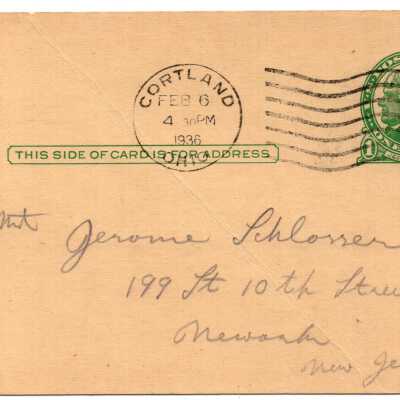 CORTLAND
FEB 6
4 30 PM
1936
OHIO
THIS SIDE OF CARD IS FOR ADDRESS
1
Jerome Schlosser
199 St 10th Stree
Newark
New Je